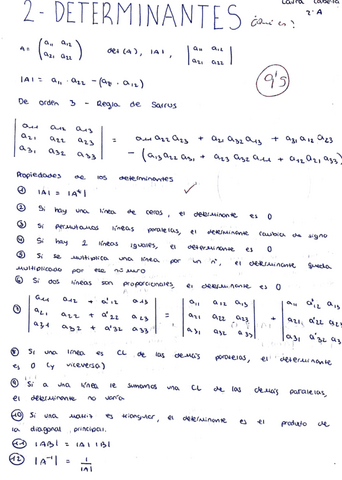 2 - DETERMINANTES ¿Qué es?
2ºA
A = ( a11 a12 / a21 a22 ) det (A), |A|, | a11 a12 / a21 a22 |
|A| = a11 · a22 - (a21 · a12)
9'5
De orden 3 - Regla de Sarrus
| a11 a12 a13 |
| a21 a22 a23 | = a11 a22 a33 + a21 a32 a13 + a31 a12 a23
| a31 a32 a33 | - (a13 a22 a31 + a23 a32 a11 + a12 a21 a33)
Propiedades de los determinantes
① |A| = |Aᵗ|
② Si hay una línea de ceros, el determinante es 0
③ Si permutamos líneas paralelas, el determinante cambia de signo
④ Si hay 2 líneas iguales, el determinante es 0
⑤ Si se multiplica una línea por un nº, el determinante queda
multiplicado por ese número
⑥ Si dos líneas son proporcionales, el determinante es 0
⑦ | a11 a12 + a'12 a13 | | a11 a12 a13 | | a11 a'12 a13 |
| a21 a22 + a'22 a23 | = | a21 a22 a23 | + | a21 a'22 a23 |
| a31 a32 + a'32 a33 | | a31 a32 a33 | | a31 a'32 a33 |
⑧ Si una línea es CL de las demás paralelas, el determinante
es 0 (y viceversa)
⑨ Si a una línea le sumamos una CL de las demás paralelas,
el determinante no varía
⑩ Si una matriz es triangular, el determinante es el producto de
la diagonal principal.
⑪ |AB| = |A| · |B|
⑫ |A⁻¹| = 1/|A|